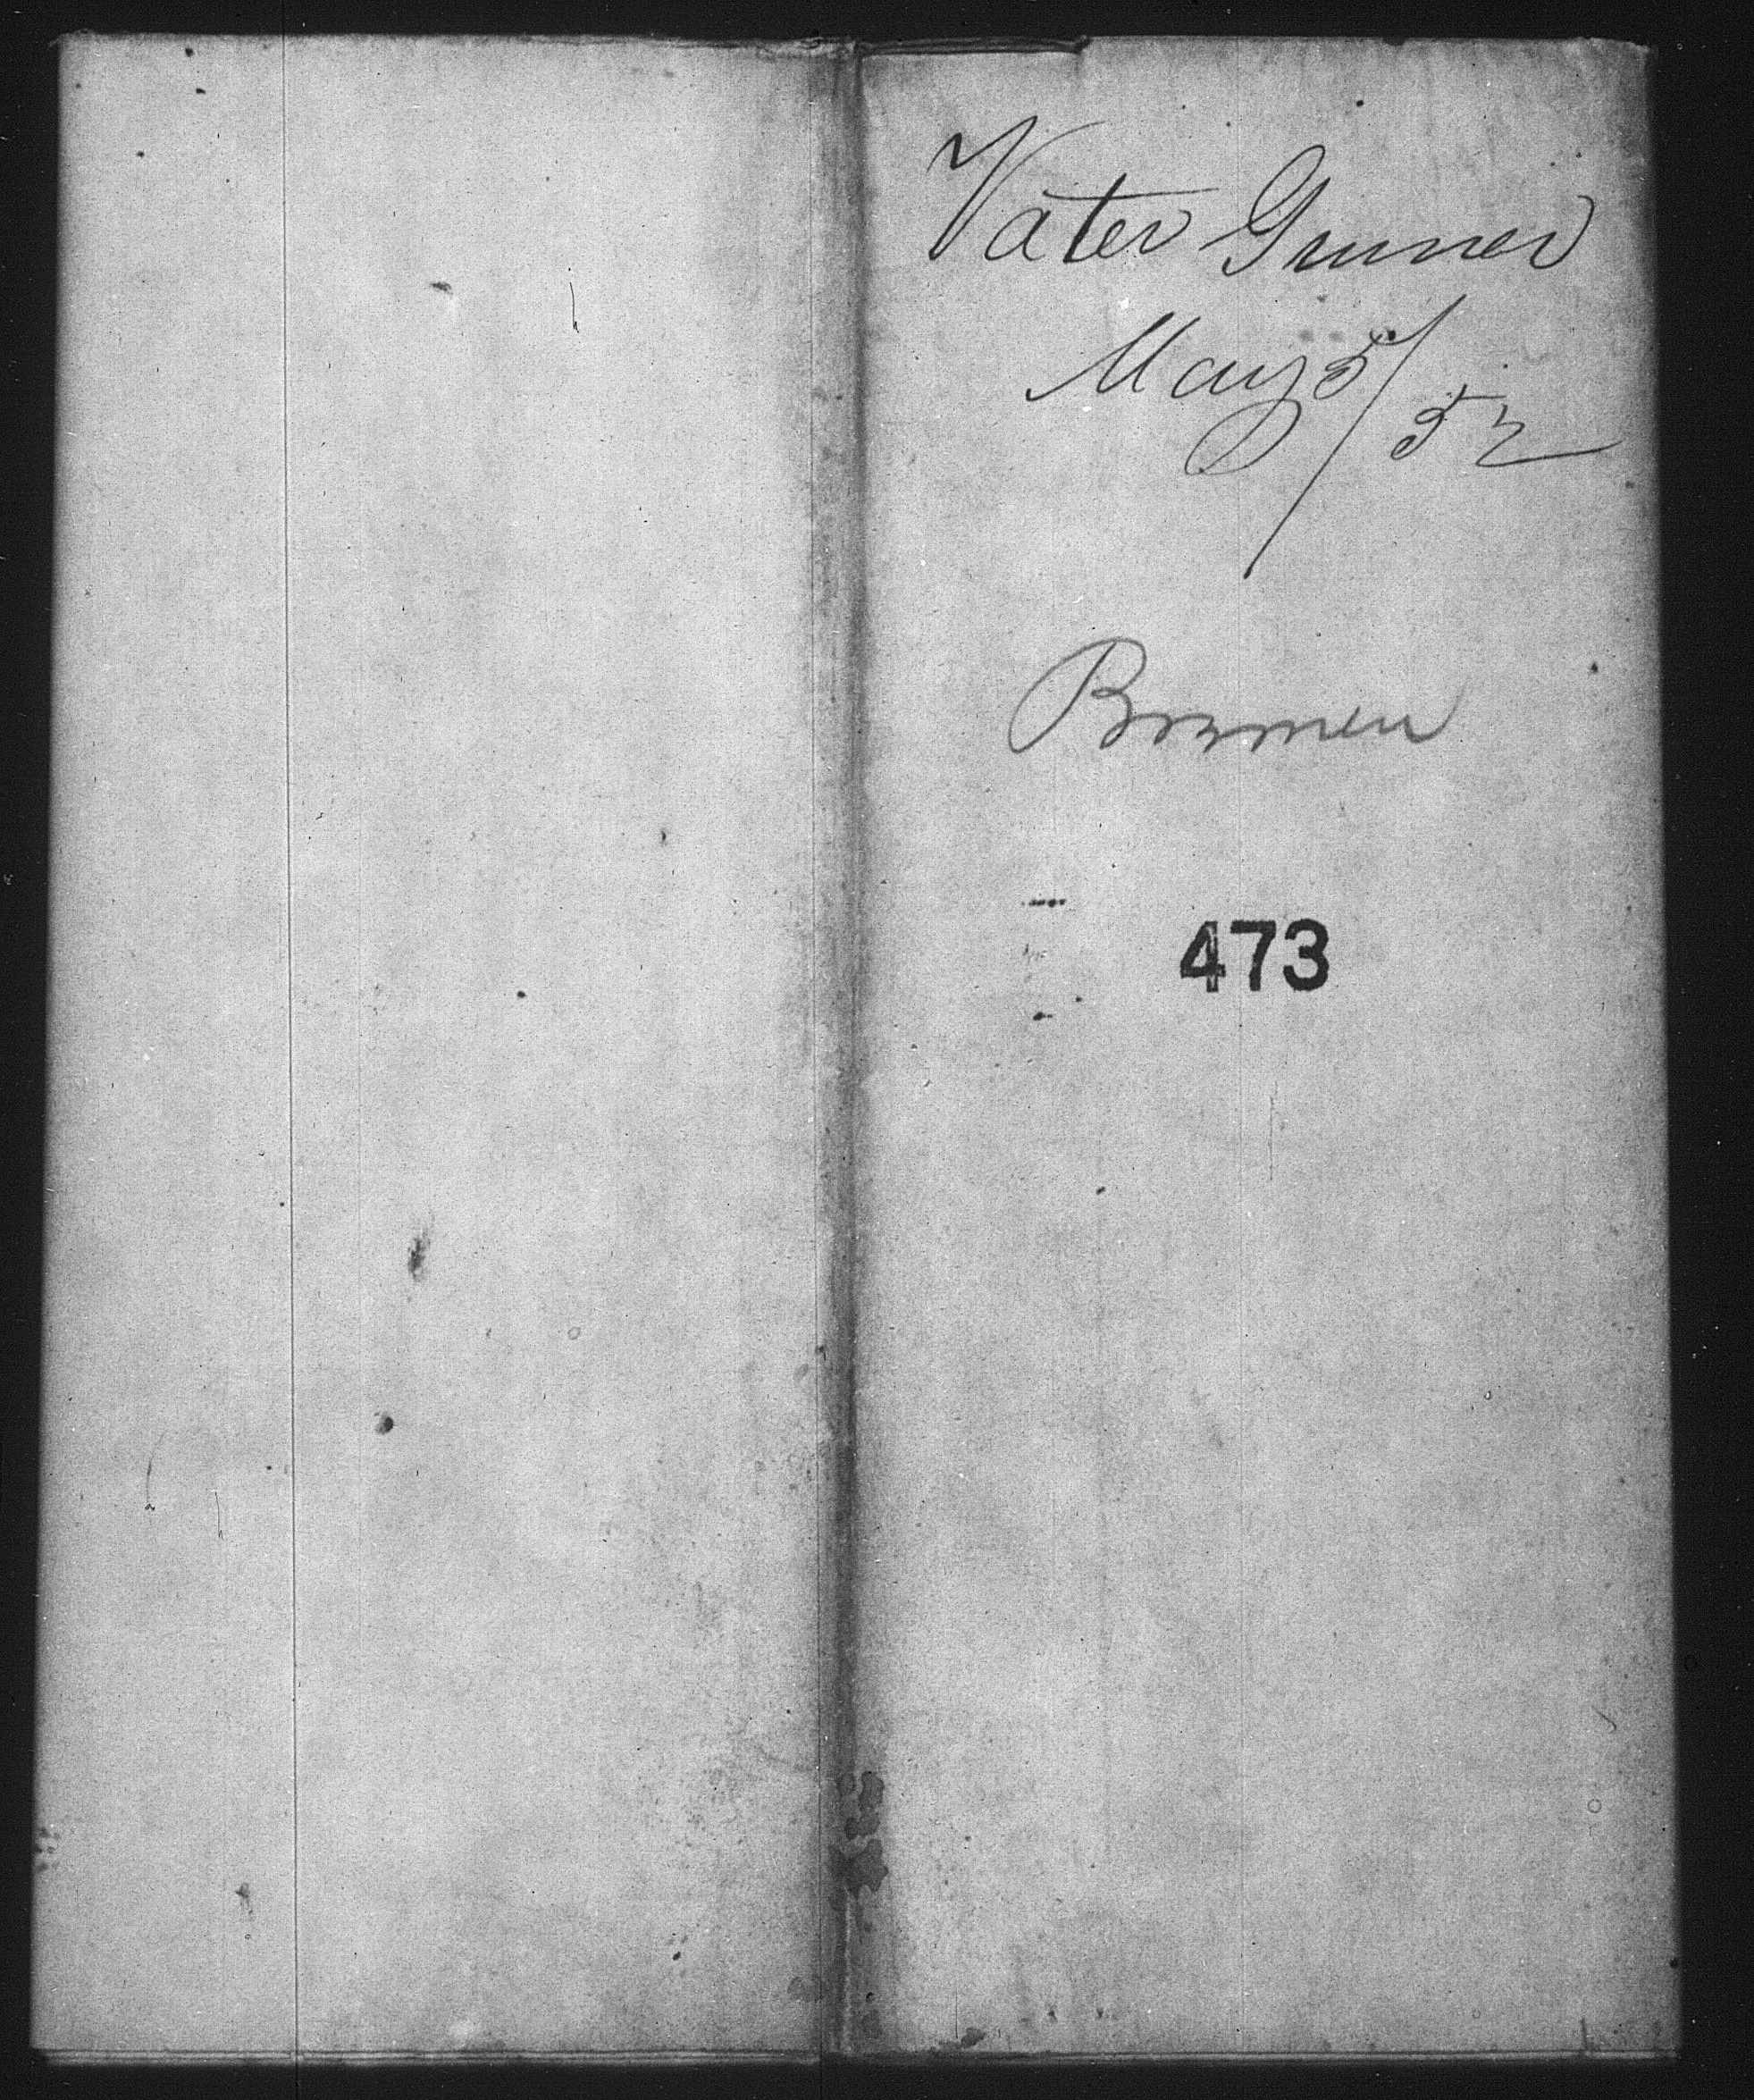 Vater Gruner
May 5/52
Bremen
473